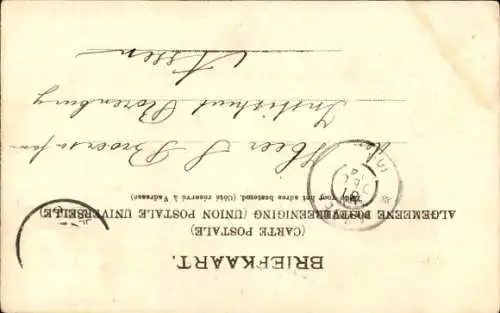 BRIEFKAART.
(CARTE POSTALE)
ALGEMEENE POSTVEREENIGING (UNION POSTALE UNIVERSELLE)
Zijde voor het adres bestemd. (Côté réservé à l'adresse)
den Heer S Broersma
Instituut Rozenburg
Assen